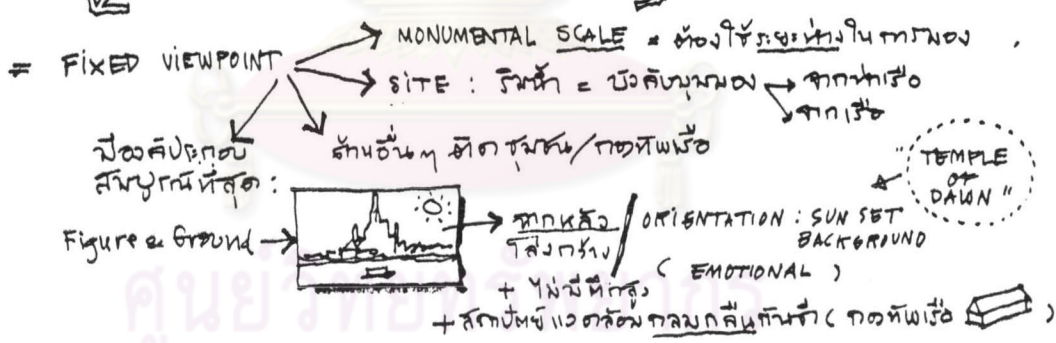 = FIXED VIEWPOINT
MONUMENTAL SCALE = ต้องใช้ระยะห่างในการมอง
SITE : ริมน้ำ = บังคับมุมมอง → จากท่าเรือ
จากเรือ
ด้านอื่นๆ ติดชุมชน/กองทัพเรือ
มีองค์ประกอบ
สมบูรณ์ที่สุด :
Figure & Ground →
"TEMPLE
OF
DAWN"
ฉากหลัง / ORIENTATION : SUN SET
BACKGROUND
โล่งกว้าง
( EMOTIONAL )
+ ไม่มีตึกสูง
+ สถาปัตย์แวดล้อมกลมกลืนกันดี ( กองทัพเรือ )
ศูนย์วิทยทรัพยากร